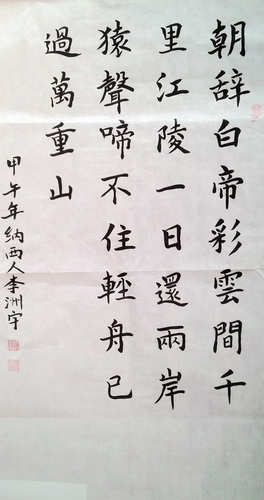 朝辞白帝彩雲間千
里江陵一日還兩岸
猿聲啼不住輕舟已
過萬重山
甲午年納西人李洲宇